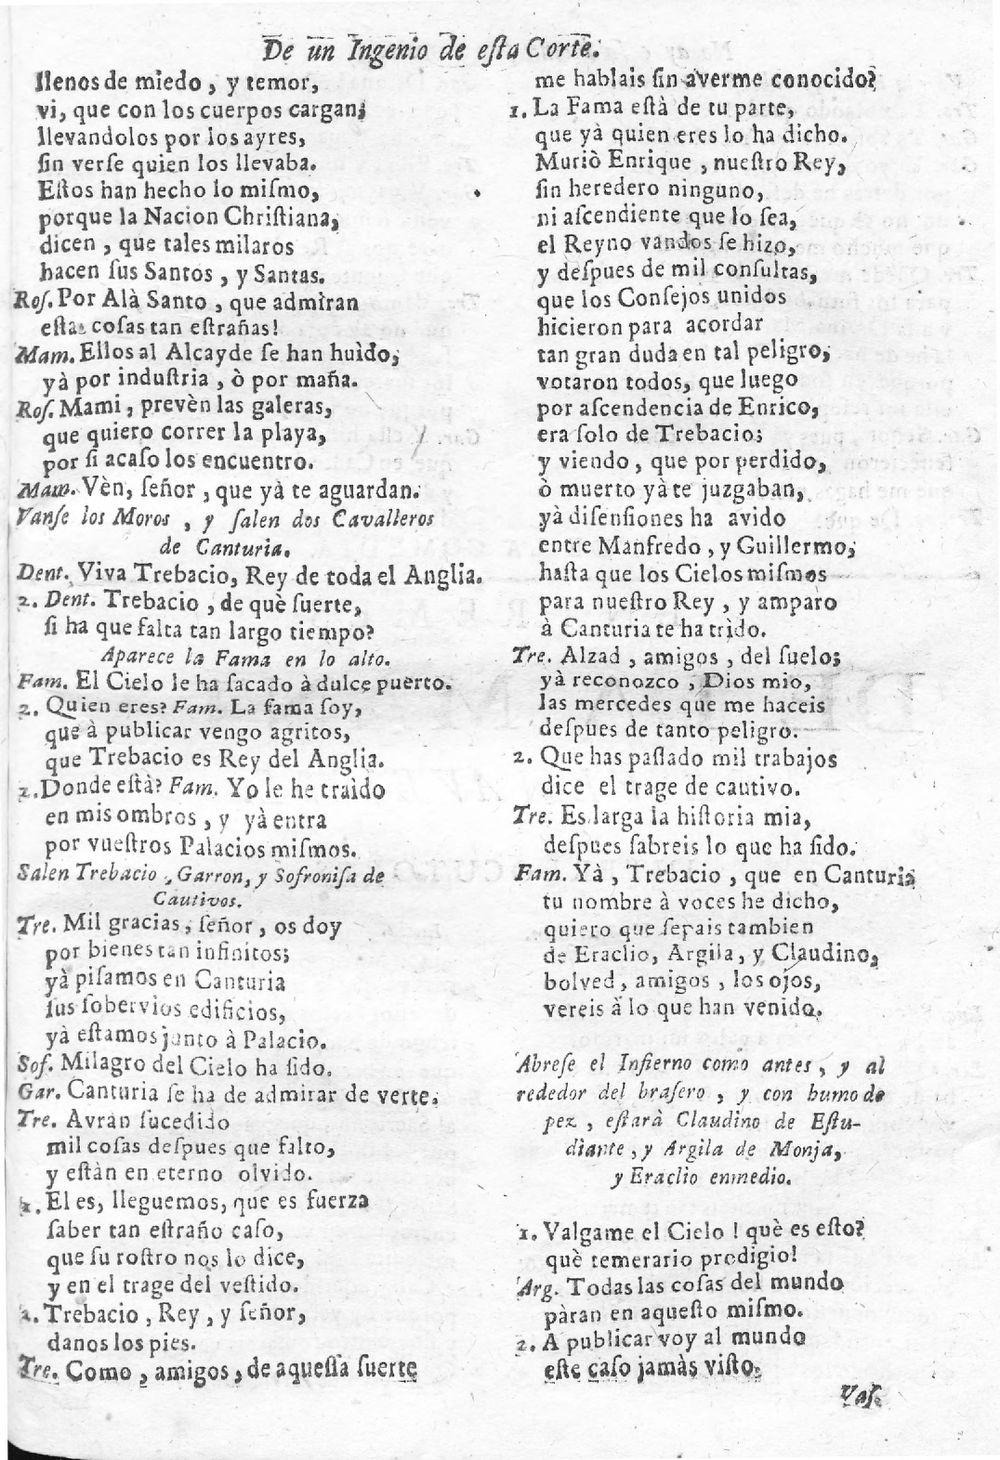 De un Ingenio de eſta Corte.
llenos de miedo, y temor,
vi, que con los cuerpos cargan;
llevandolos por los ayres,
ſin verſe quien los llevaba.
Eſtos han hecho lo miſmo,
porque la Nacion Chriſtiana,
dicen, que tales milaros
hacen ſus Santos, y Santas.
Roſ. Por Alà Santo, que admiran
eſtas coſas tan eſtrañas!
Mam. Ellos al Alcayde ſe han huìdo,
yà por induſtria, ò por maña.
Roſ. Mami, prevèn las galeras,
que quiero correr la playa,
por ſi acaſo los encuentro.
Mam. Vèn, ſeñor, que yà te aguardan.
Vanſe los Moros, y ſalen dos Cavalleros
de Canturia.
Dent. Viva Trebacio, Rey de toda el Anglia.
2. Dent. Trebacio, de què ſuerte,
ſi ha que falta tan largo tiempo?
Aparece la Fama en lo alto.
Fam. El Cielo le ha ſacado à dulce puerto.
2. Quien eres? Fam. La fama ſoy,
que à publicar vengo agritos,
que Trebacio es Rey del Anglia.
2. Donde eſtà? Fam. Yo le he traìdo
en mis ombros, y yà entra
por vueſtros Palacios miſmos.
Salen Trebacio, Garron, y Sofroniſa de
Cautivos.
Tre. Mil gracias, ſeñor, os doy
por bienes tan infinitos;
yà piſamos en Canturia
ſus ſobervios edificios,
yà eſtamos junto à Palacio.
Soſ. Milagro del Cielo ha ſido.
Gar. Canturia ſe ha de admirar de verte.
Tre. Avràn ſucedido
mil coſas deſpues que falto,
y eſtàn en eterno olvido.
1. El es, lleguemos, que es fuerza
ſaber tan eſtraño caſo,
que ſu roſtro nos lo dice,
y en el trage del veſtido.
2. Trebacio, Rey, y ſeñor,
danos los pies.
Tre. Como, amigos, de aqueſſa ſuerte
me hablais ſin averme conocido?
1. La Fama eſtà de tu parte,
que yà quien eres lo ha dicho.
Muriò Enrique, nueſtro Rey,
ſin heredero ninguno,
ni aſcendiente que lo ſea,
el Reyno vandos ſe hizo,
y deſpues de mil conſultas,
que los Conſejos unidos
hicieron para acordar
tan gran duda en tal peligro,
votaron todos, que luego
por aſcendencia de Enrico,
era ſolo de Trebacio;
y viendo, que por perdido,
ò muerto yà te juzgaban,
yà diſenſiones ha avido
entre Manfredo, y Guillermo,
haſta que los Cielos miſmos
para nueſtro Rey, y amparo
à Canturia te ha trìdo.
Tre. Alzad, amigos, del ſuelo;
yà reconozco, Dios mio,
las mercedes que me haceis
deſpues de tanto peligro.
2. Que has paſſado mil trabajos
dice el trage de cautivo.
Tre. Es larga la hiſtoria mia,
deſpues ſabreis lo que ha ſido.
Fam. Yà, Trebacio, que en Canturia
tu nombre à voces he dicho,
quiero que ſepais tambien
de Eraclio, Argila, y Claudino,
bolved, amigos, los ojos,
vereis à lo que han venido.
Abreſe el Infierno como antes, y al
rededor del braſero, y con humo de
pez, eſtarà Claudino de Eſtu-
diante, y Argila de Monja,
y Eraclio enmedio.
1. Valgame el Cielo! què es eſto?
què temerario prodigio!
Arg. Todas las coſas del mundo
pàran en aqueſto miſmo.
2. A publicar voy al mundo
eſte caſo jamàs viſto.
Vaſ.